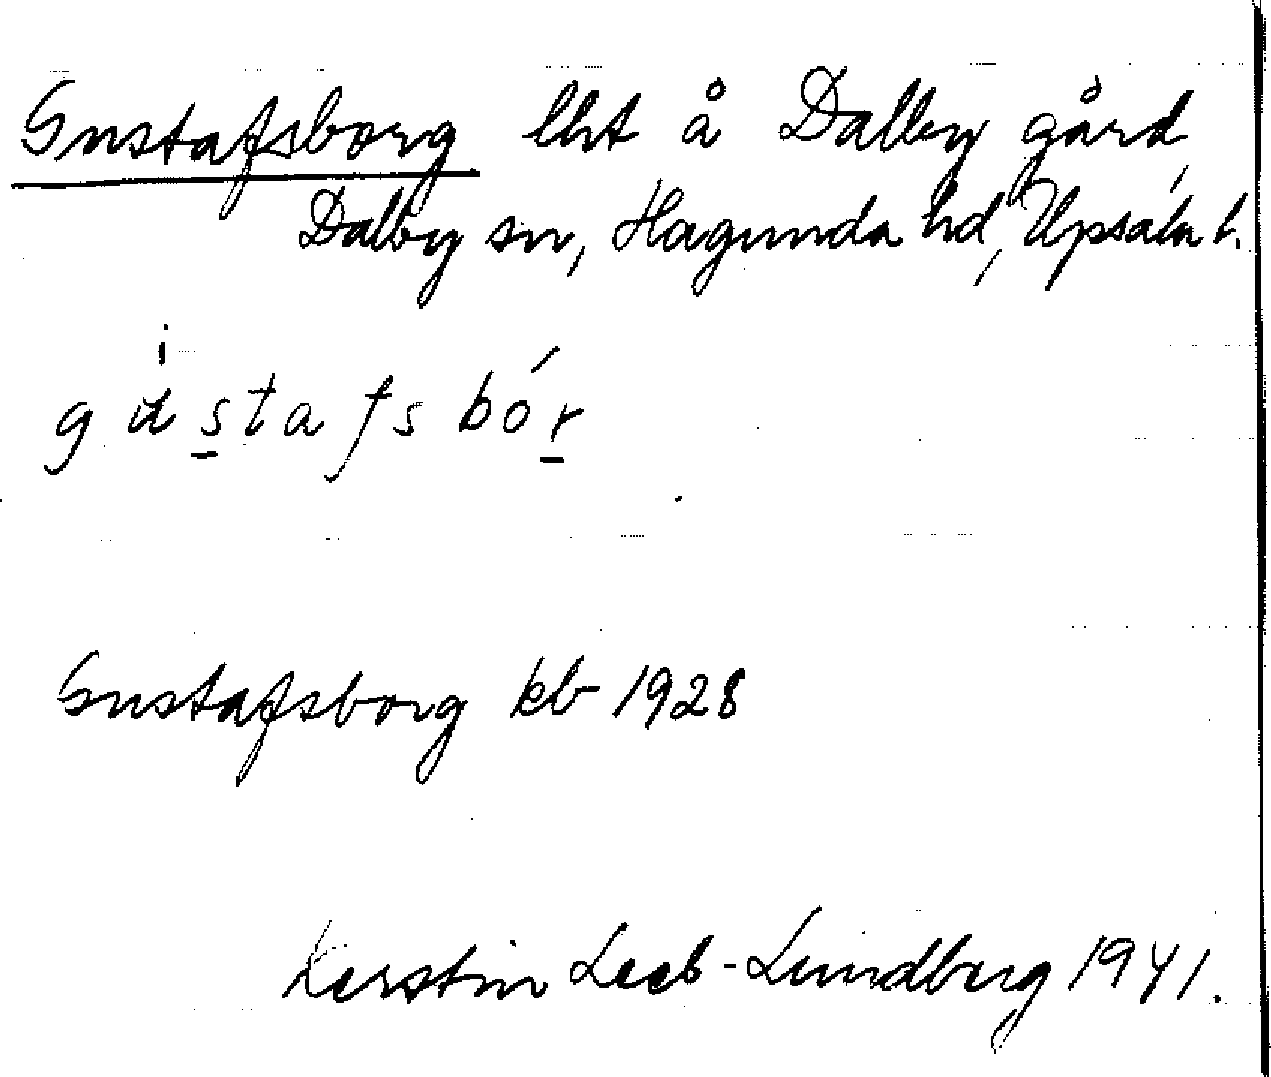 Gustafsborg lht å Dalby gård,
Dalby sn, Hagunda hd, Upsala l.
gústafsbór
Gustafsborg kb 1928
Kerstin Leeb-Lundberg 1941.